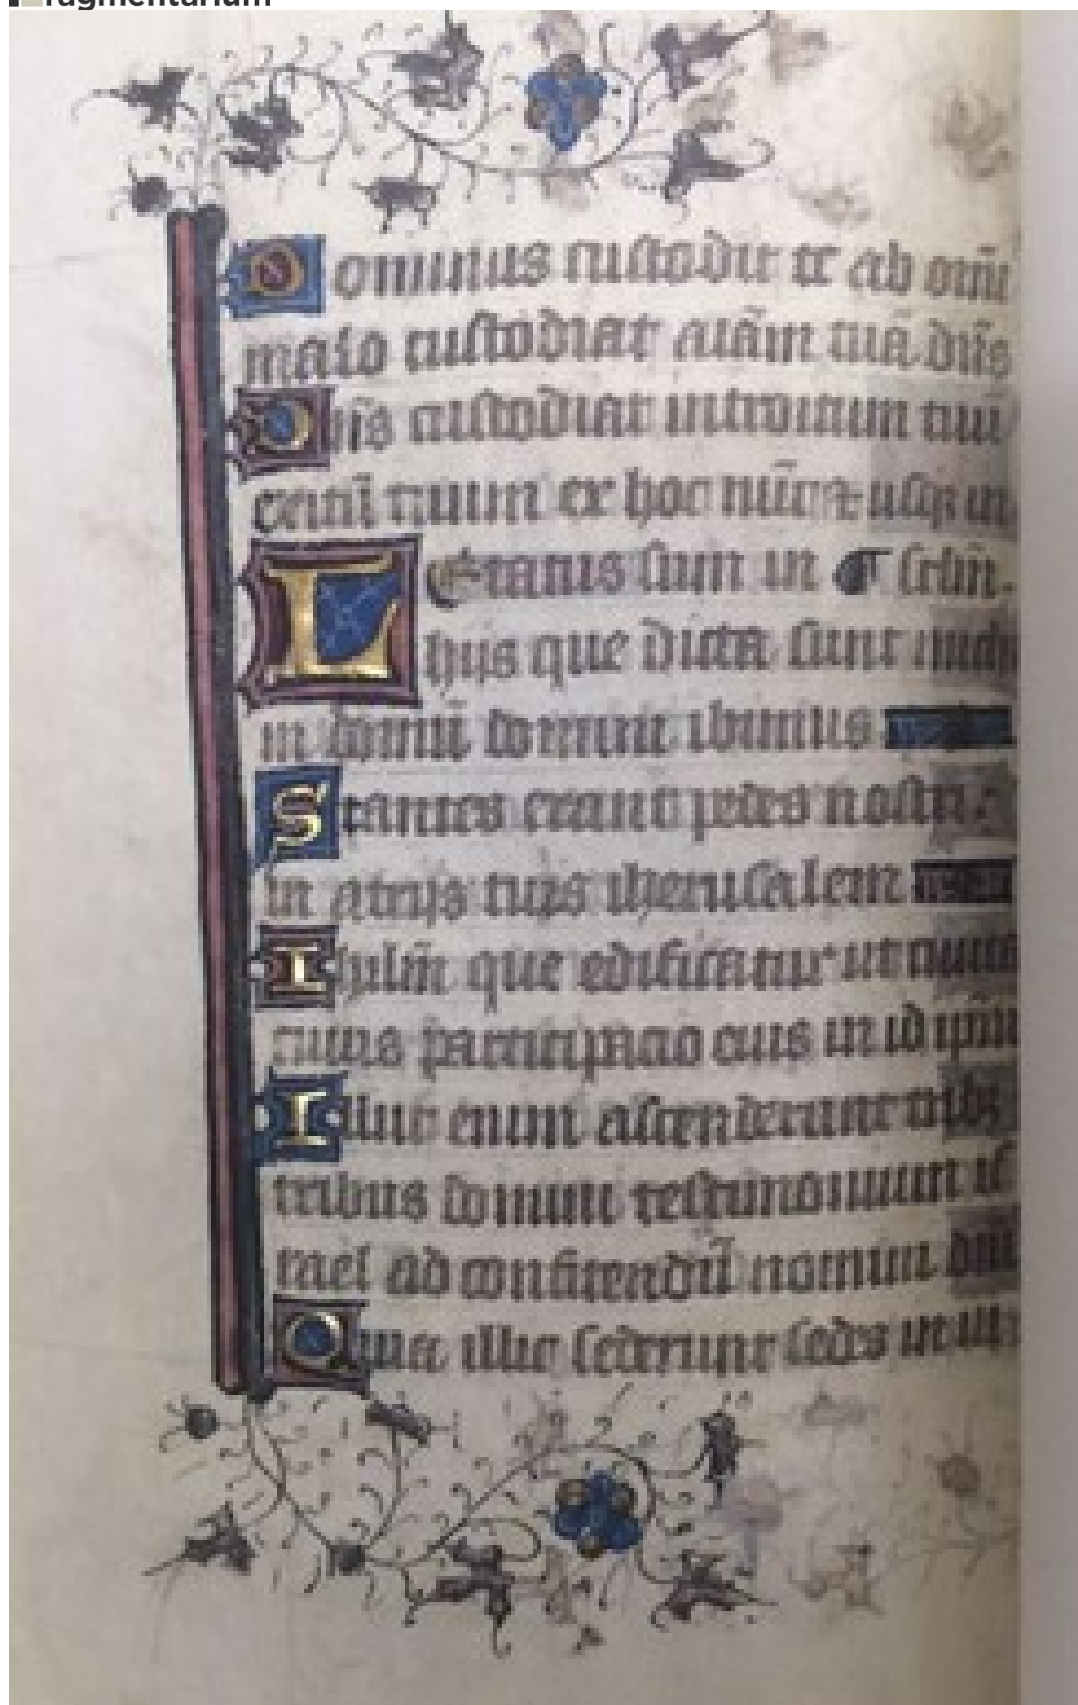 Fragmentarium
Dominus custodit te ab omī
malo custodiat aīam tuā dn̄s
Dn̄s custodiat introitum tuū
exitū tuum ex hoc nūc ⁊ usq in
Letatus sum in
hijs que dicta sunt mich
in domū domini ibimus
Stantes erant pedes nostri
in atrijs tuis iherusalem
Ihrlm̄ que edificatur ut ciuita
cuius participacio eius in idip̄m
Illuc enim ascenderunt trib
tribus domini testimonium is
rael ad confitendū nomini
Quia illic sederunt sedes in